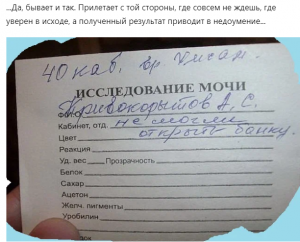 ...Да, бывает и так. Прилетает с той стороны, где совсем не ждешь, где
уверен в исходе, а полученный результат приводит в недоумение...
40 каб. вр.
ИССЛЕДОВАНИЕ МОЧИ
Кривокорытов А. С.
Кабинет, отд. не могли
Цвет открыть банку.
Реакция
Уд. вес Прозрачность
Белок
Сахар
Ацетон
Желч. пигменты
Уробилин